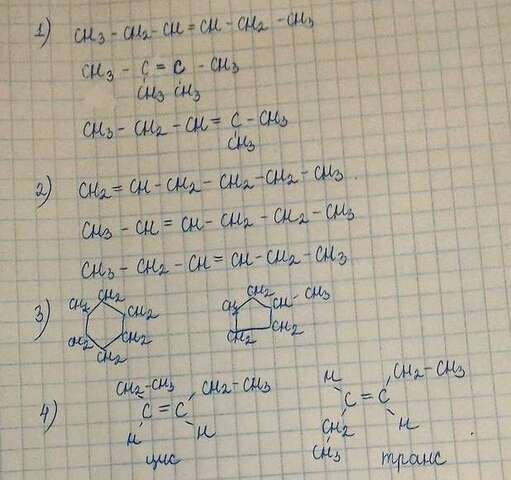 1) CH3 - CH2 - CH = CH - CH2 - CH3
CH3 - C = C - CH3
CH3 CH3
CH3 - CH2 - CH = C - CH3
CH3
2) CH2 = CH - CH2 - CH2 - CH2 - CH3.
CH3 - CH = CH - CH2 - CH2 - CH3
CH3 - CH2 - CH = CH - CH2 - CH3
3) CH2 CH2 CH2 CH2 CH2 CH2
CH2 CH - CH3 CH2 CH2
4) CH2-CH3 CH2-CH3
C = C
H H
цис
H CH2-CH3
C = C
CH2 H
CH3
транс